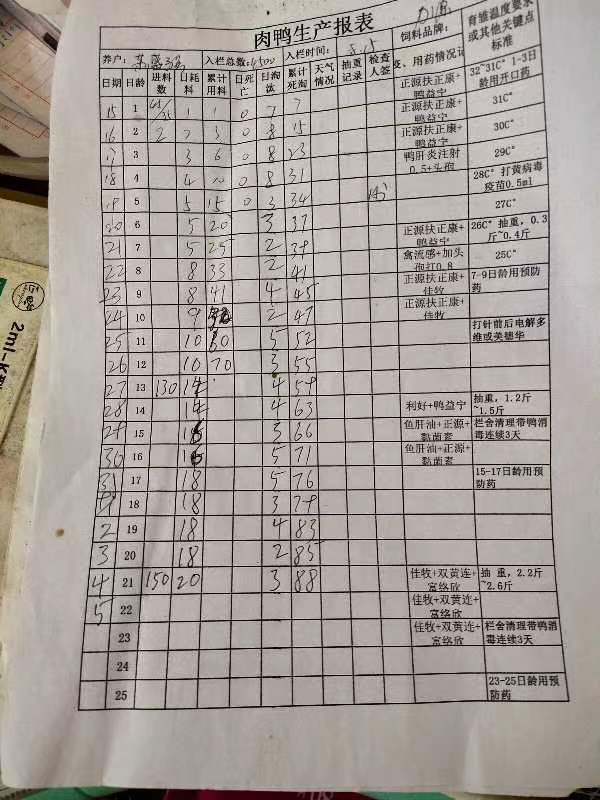 肉鸭生产报表
养户: 入栏总数:4500 入栏时间: 8.15 饲料品牌: 育雏温度要求或其他关键点标准
日期 日龄 进料数 日耗料 累计用料 日死亡 日淘汰 累计死淘 天气情况 抽重记录 检查人签 、用药情况记
15 1 1 1 0 7 7 正源扶正康+鸭益宁 32~31C° 1-3日龄用开口药
16 2 2 2 3 0 8 15 正源扶正康+鸭益宁 31C°
17 3 3 6 0 8 23 正源扶正康+鸭益宁 30C°
18 4 4 0 8 31 鸭肝炎注射0.5+头孢 29C°
19 5 5 15 0 3 34 28C° 打黄病毒疫苗0.5ml
20 6 5 20 3 37 27C°
21 7 5 25 2 39 正源扶正康+鸭益宁 26C° 抽重,0.3斤~0.4斤
22 8 8 33 2 41 禽流感+加头孢打0.8 25C°
23 9 8 41 4 45 正源扶正康+佳牧 7-9日龄用预防药
24 10 9 2 47 正源扶正康+佳牧
25 11 10 5 52 打针前后电解多维或美穗华
26 12 10 70 3 55
27 13 130 14 4 59
28 14 14 4 63 利好+鸭益宁 抽重,1.2斤~1.5斤
29 15 16 3 66 鱼肝油+正源+黏菌素 栏舍清理带鸭消毒连续3天
30 16 16 5 71 鱼肝油+正源+黏菌素
31 17 18 5 76 15-17日龄用预防药
18 18 3 79
2 19 18 4 83
3 20 18 2 85
4 21 150 20 3 88 佳牧+双黄连+富络欣 抽重,2.2斤~2.6斤
5 22 佳牧+双黄连+富络欣
23 佳牧+双黄连+富络欣 栏舍清理带鸭消毒连续3天
24
25 23-25日龄用预防药
2ml-K